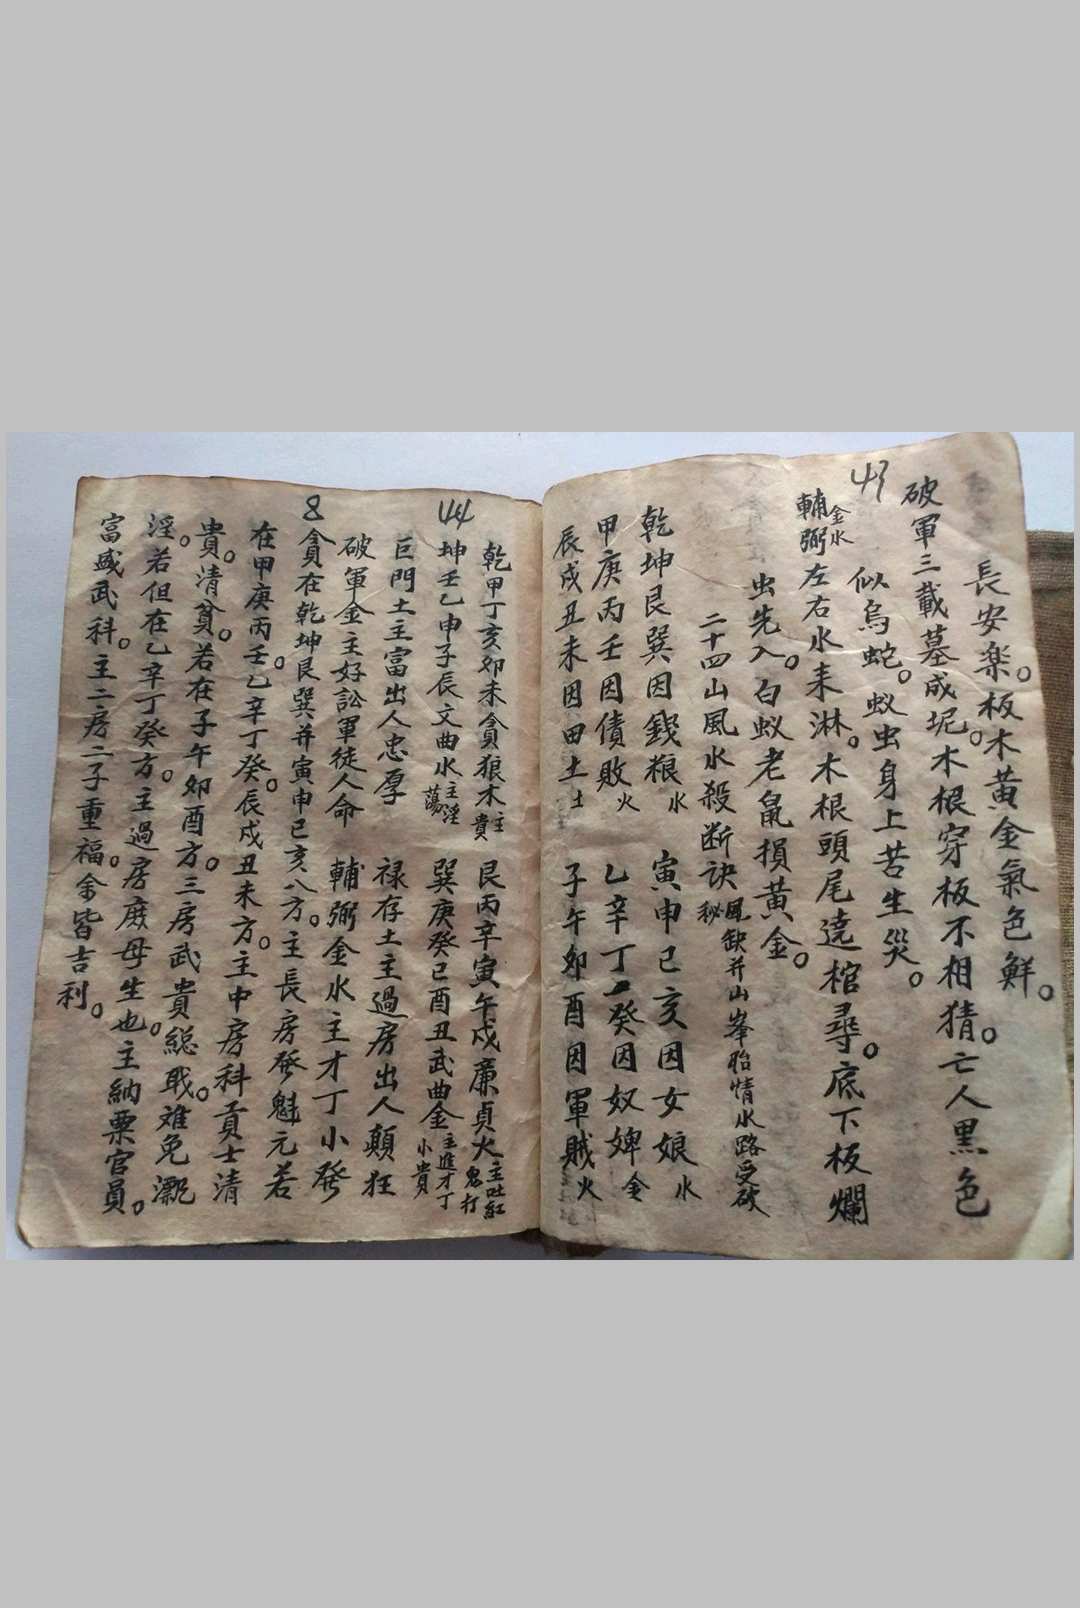 43
長安楽。板木黄金氣色鮮。
破軍三載墓成坭。木根穿板不相猜。亡人黒色
似烏蛇。蚁虫身上苦生災。
輔弼金水左右水来淋。木根頭尾遶棺尋。底下板爛
虫先入。白蚁老鼠損黄金。
二十四山風水殺断訣秘風缺并山峯胎情水路受破
乾坤艮巽因錢粮水 寅申巳亥因女娘水
甲庚丙壬因債敗火 乙辛丁癸因奴婢金
辰戌丑未因田土土 子午卯酉因軍賊火
44
乾甲丁亥卯未貪狼木主貴 艮丙辛寅午戍廉貞火主吐紅鬼打
坤壬乙申子辰文曲水主淫蕩 巽庚癸巳酉丑武曲金主進才丁小貴
巨門土主富出人忠厚 禄存土主過房出人顛狂
破軍金主好訟軍徒人命 輔弼金水主才丁小發
8
貪在乾坤艮巽并寅申巳亥八方。主長房發魁元若
在甲庚丙壬。乙辛丁癸。辰戍丑未方。主中房科貢士清
貴。清貧。若在子午卯酉方。三房武貴総戢。难免飄
淫。若但在乙辛丁癸方。主過房庶母生也。主納粟官員。
富盛武科。主二房二子重福。余皆吉利。